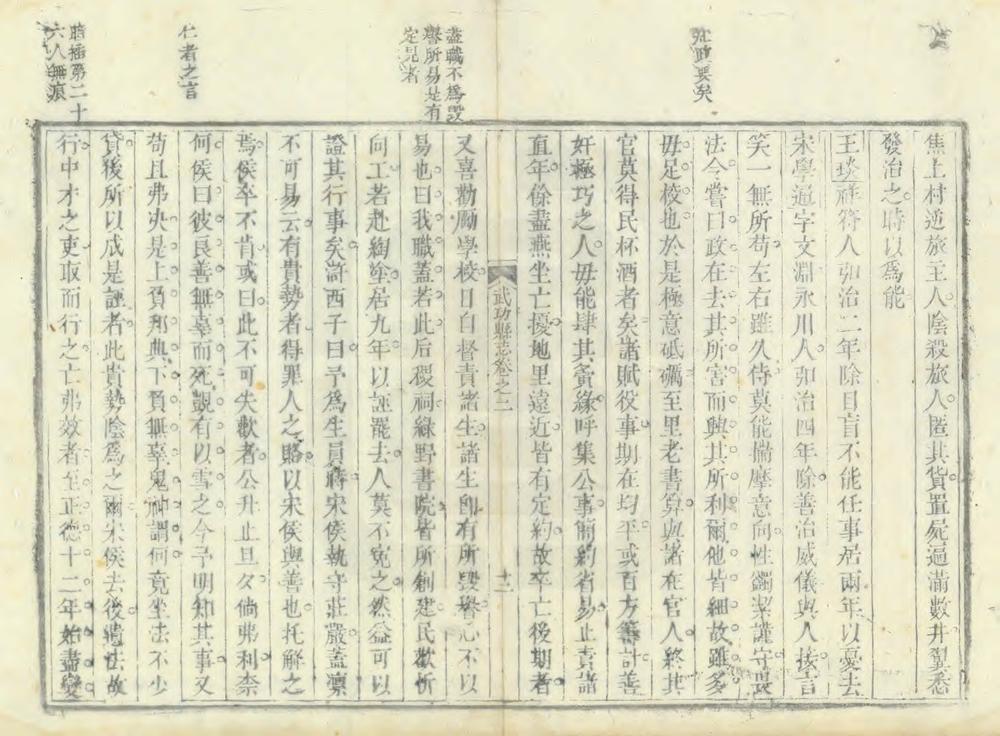 知政要矣
盡職不爲毀
譽所易是有
定見者
仁者之言
暗插第二十
六人無痕
焦上村逆旅王人陰殺旅人匿其貨置屍逼滿數井翼悉
發治之時以爲能
王琰祥符人弘治二年除目盲不能任事居兩年以憂去
宋學通字文淵永川人弘治四年除善治威儀與人接言
笑一無所苟左右雖久侍莫能揣摩意向性蠲潔謹守畏
法令嘗曰政在去其所害而興其所利爾他皆細故雖多
毋足校也於是極意砥礪至里老書算與諸在官人終其
官莫得民杯酒者矣諸賦役事期在均平或百方籌計善
奸極巧之人毋能肆其夤緣呼集公事簡約省易止責諸
直年餘盡燕坐亡擾地里遠近皆有定約故卒亡後期者
武功縣志卷之二
十二
又喜勸勵學校日自督責諸生諸生卽有所毀譽心不以
易也曰我職蓋若此后稷祠綠野書院皆所創建民歡忻
向工者赴綯塗居九年以誣罷去人莫不寃之然益可以
證其行事矣滸西子曰予爲生員時宋侯執守莊嚴蓋凛
不可易云有貴勢者得罪人之賂以宋侯與善也托解之
焉侯卒不肯或曰此不可失歡者公升止旦夕倘弗利柰
何侯曰彼良善無辜而死覬有以雪之今予明知其事又
苟且弗决是上負邦典下負無辜鬼神謂何竟坐法不少
貸後所以成是誣者此貴勢陰爲之爾宋侯去後遺法故
行中才之吏取而行之亡弗效者至正德十二年始盡變